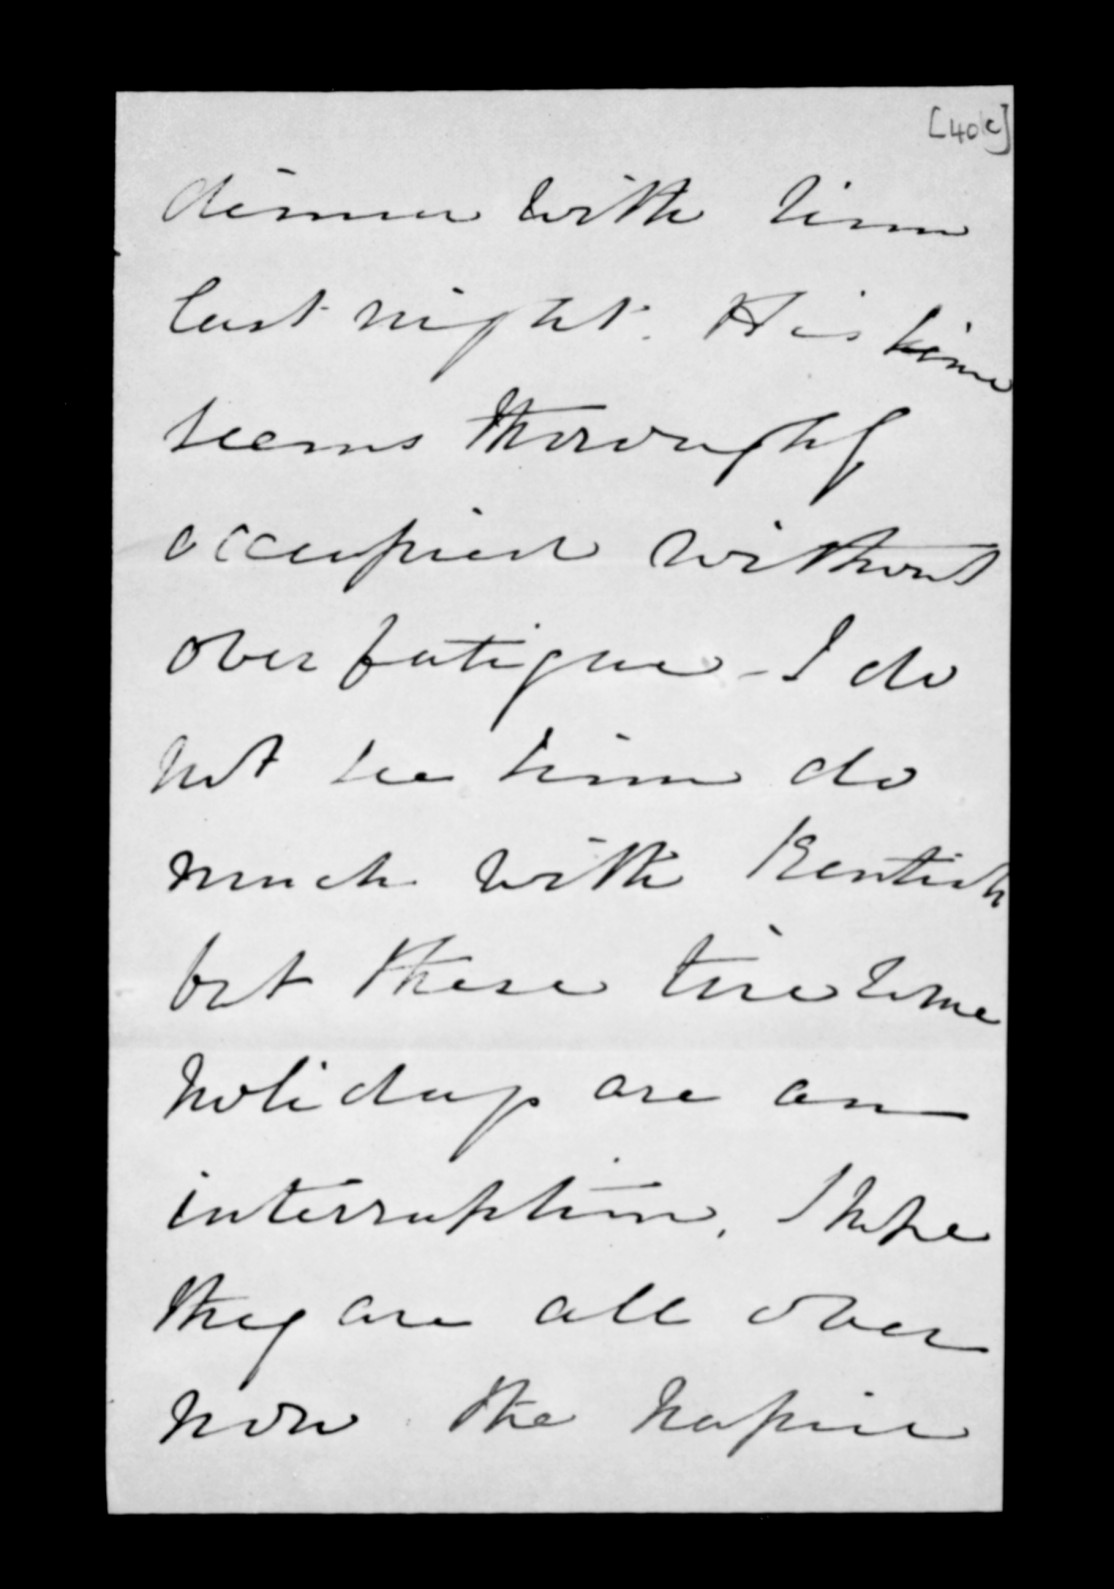 [40c]
dinner with him
last night. His time
seems thoroughly
occupied without
over fatigue - I do
not see him do
much with Kentish
but these tiresome
holidays are an
interruption, I hope
they are all over
now the Napier